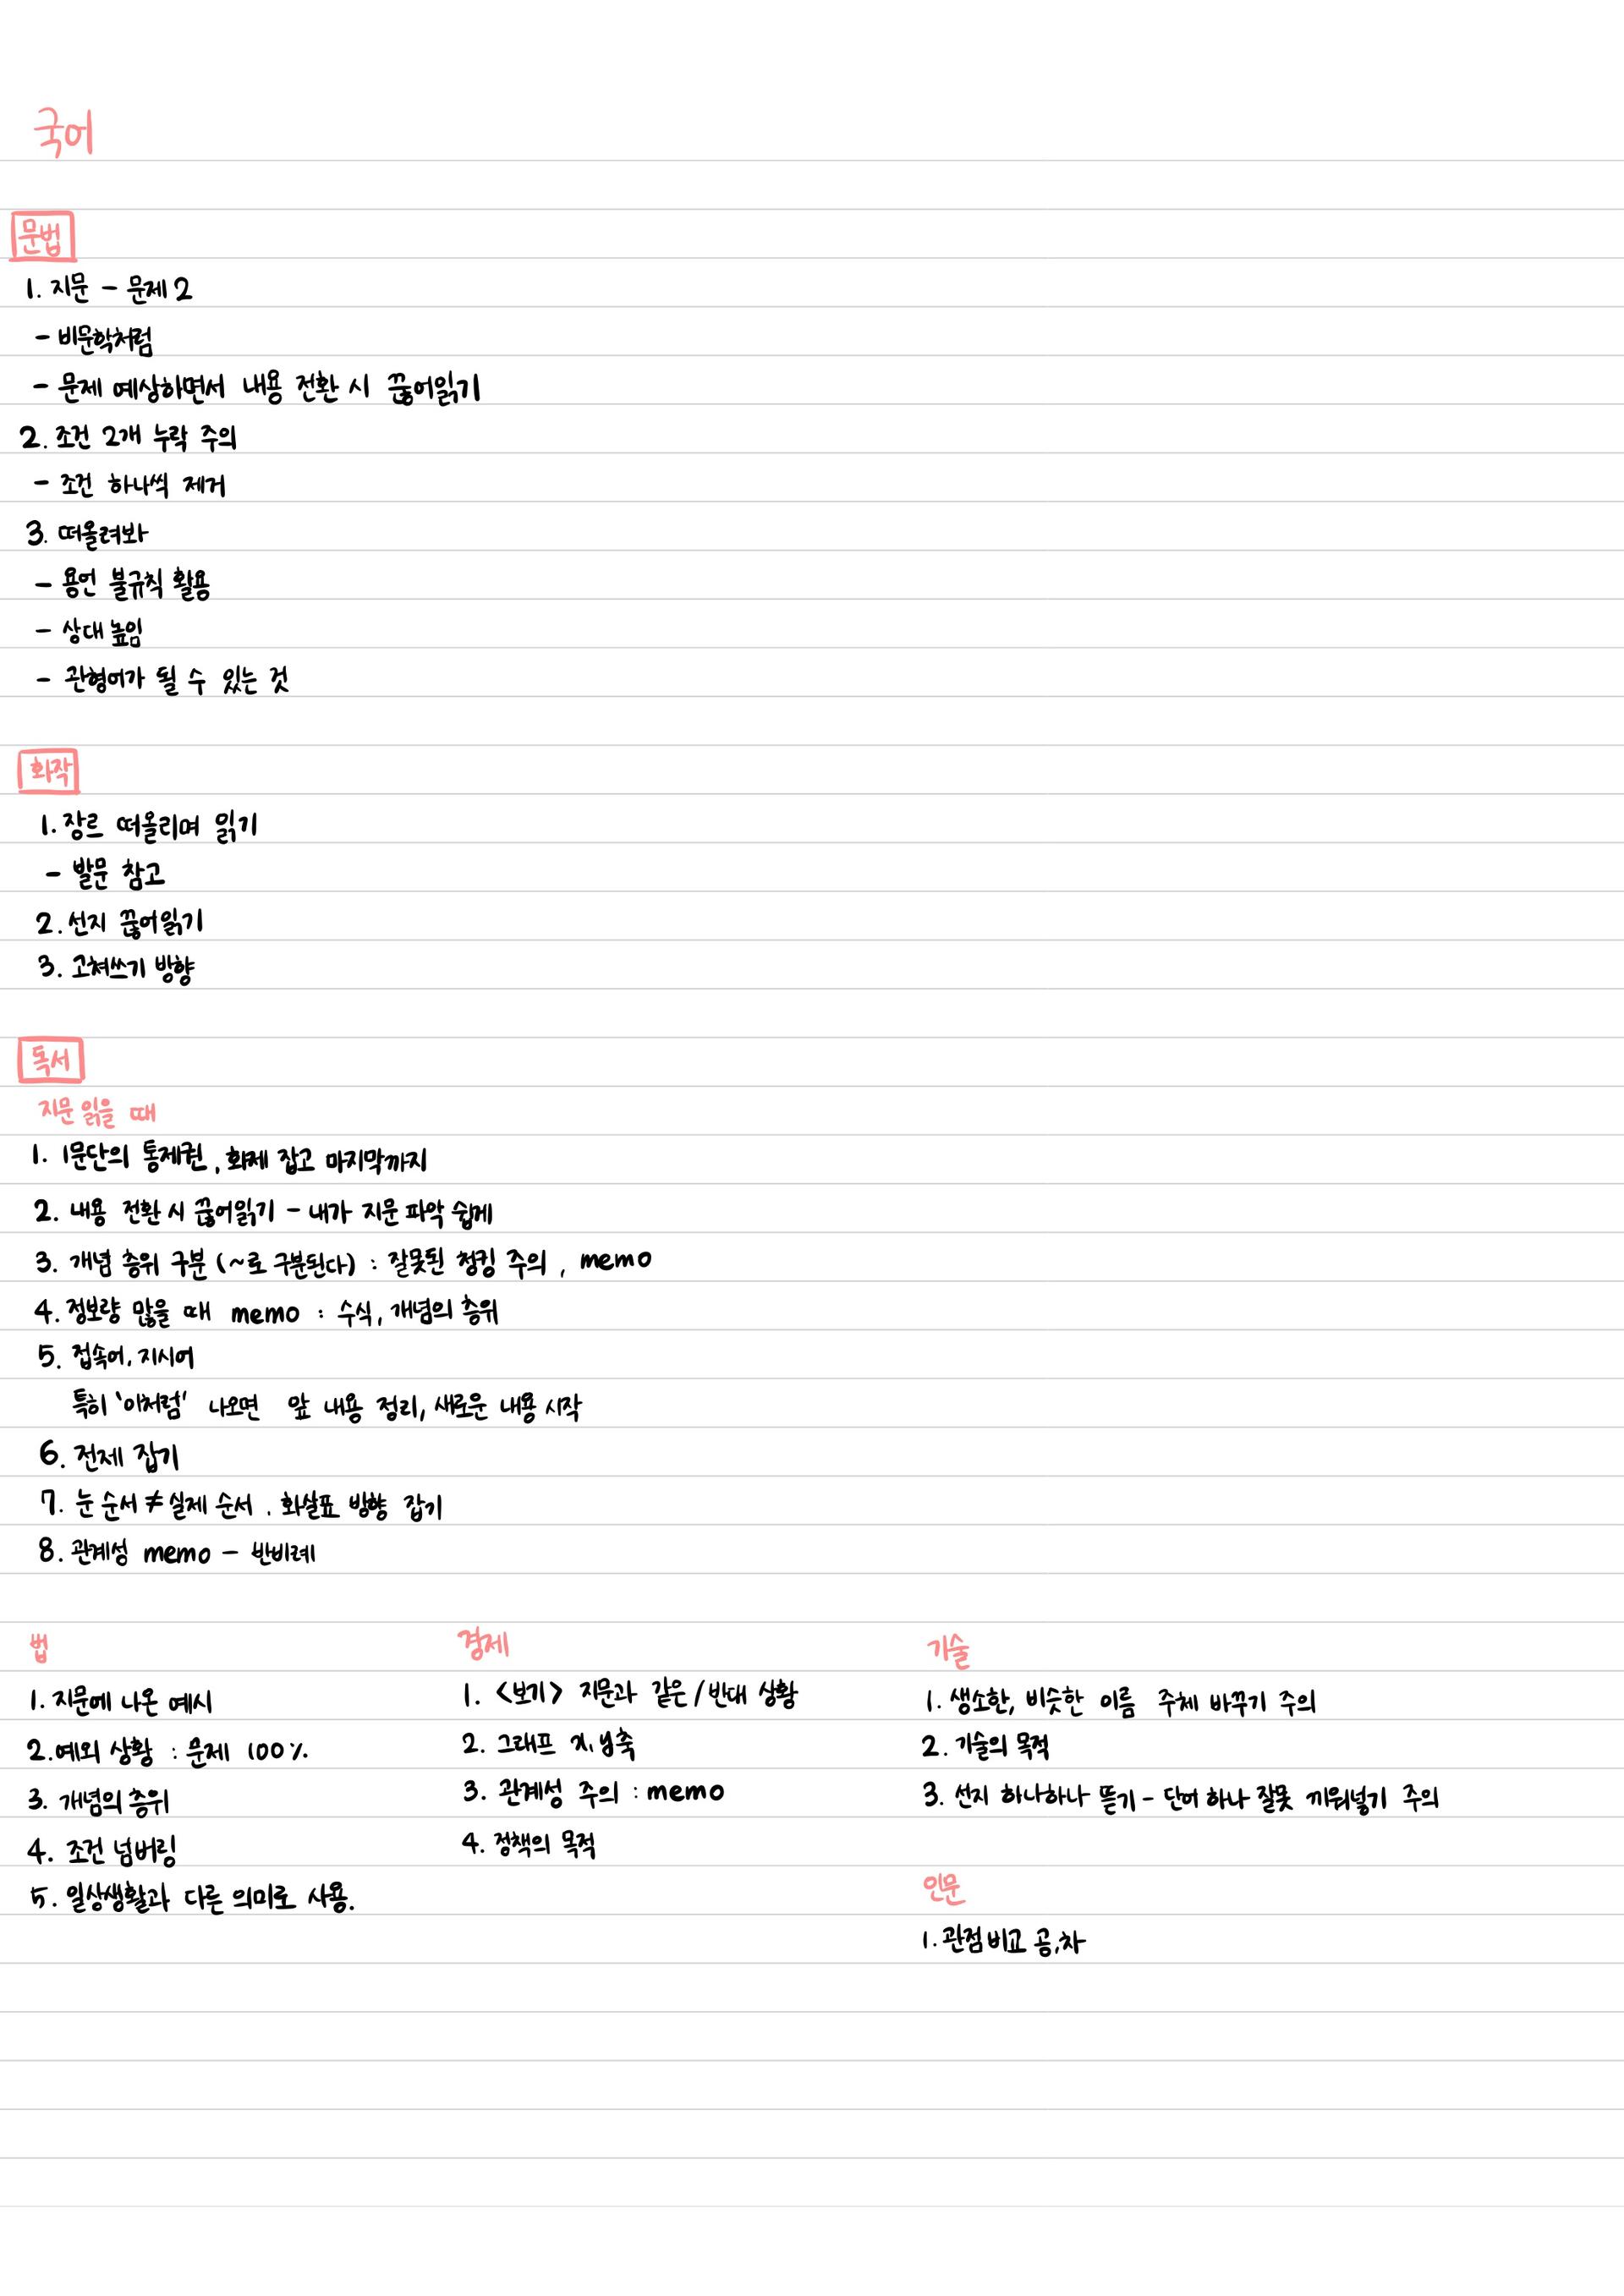 국어
문법
1. 지문 - 문제 2
- 비문학처럼
- 문제 예상하면서 내용 전환 시 끊어읽기
2. 조건 2개 누락 주의
- 조건 하나씩 제거
3. 떠올려봐
- 용언 불규칙 활용
- 상대 높임
- 관형어가 될 수 있는 것
화작
1. 장르 떠올리며 읽기
- 발문 참고
2. 선지 끊어읽기
3. 고쳐쓰기 방향
독서
지문 읽을 때
1. 1문단의 통제권, 화제 잡고 마지막까지
2. 내용 전환 시 끊어읽기 - 내가 지문 파악 쉽게
3. 개념 층위 구분 (~로 구분된다) : 잘못된 청킹 주의, memo
4. 정보량 많을 때 memo : 수식, 개념의 층위
5. 접속어, 지시어
특히 '이처럼' 나오면 앞 내용 정리, 새로운 내용 시작
6. 전제 잡기
7. 눈 순서 ≠ 실제 순서. 화살표 방향 잡기
8. 관계성 memo - 반비례
법
1. 지문에 나온 예시
2. 예외 상황 : 문제 100%
3. 개념의 층위
4. 조건 넘버링
5. 일상생활과 다른 의미로 사용.
경제
1. <보기> 지문과 같은/반대 상황
2. 그래프 x, y축
3. 관계성 주의 : memo
4. 정책의 목적
기술
1. 생소한, 비슷한 이름 주체 바꾸기 주의
2. 기술의 목적
3. 선지 하나하나 뜯기 - 단어 하나 잘못 끼워넣기 주의
인문
1. 관점 비교 공, 차